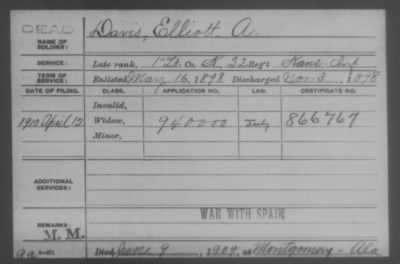 DEAD
NAME OF SOLDIER:
Davis, Elliott A.
SERVICE:
Late rank, 1" Lt. Co. K, 22 Reg't Kans. Inf
TERM OF SERVICE:
Enlisted May 16, 1898 Discharged Nov. 3, 1898
DATE OF FILING. CLASS. APPLICATION NO. LAW. CERTIFICATE NO.
Invalid,
1910 April 12 Widow, 940000 866767
Minor,
ADDITIONAL SERVICES:
WAR WITH SPAIN
REMARKS:
M. M.
Died June 9, 1909, at Montgomery - Ala